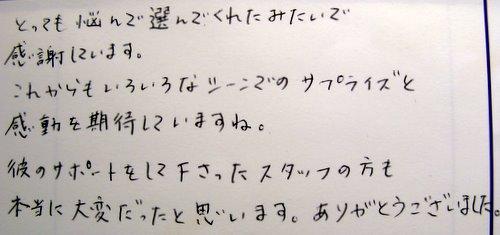 とっても悩んで選んでくれたみたいで
感謝しています。
これからもいろいろなシーンでのサプライズと
感動を期待していますね。
彼のサポートをして下さったスタッフの方も
本当に大変だったと思います。ありがとうございました。